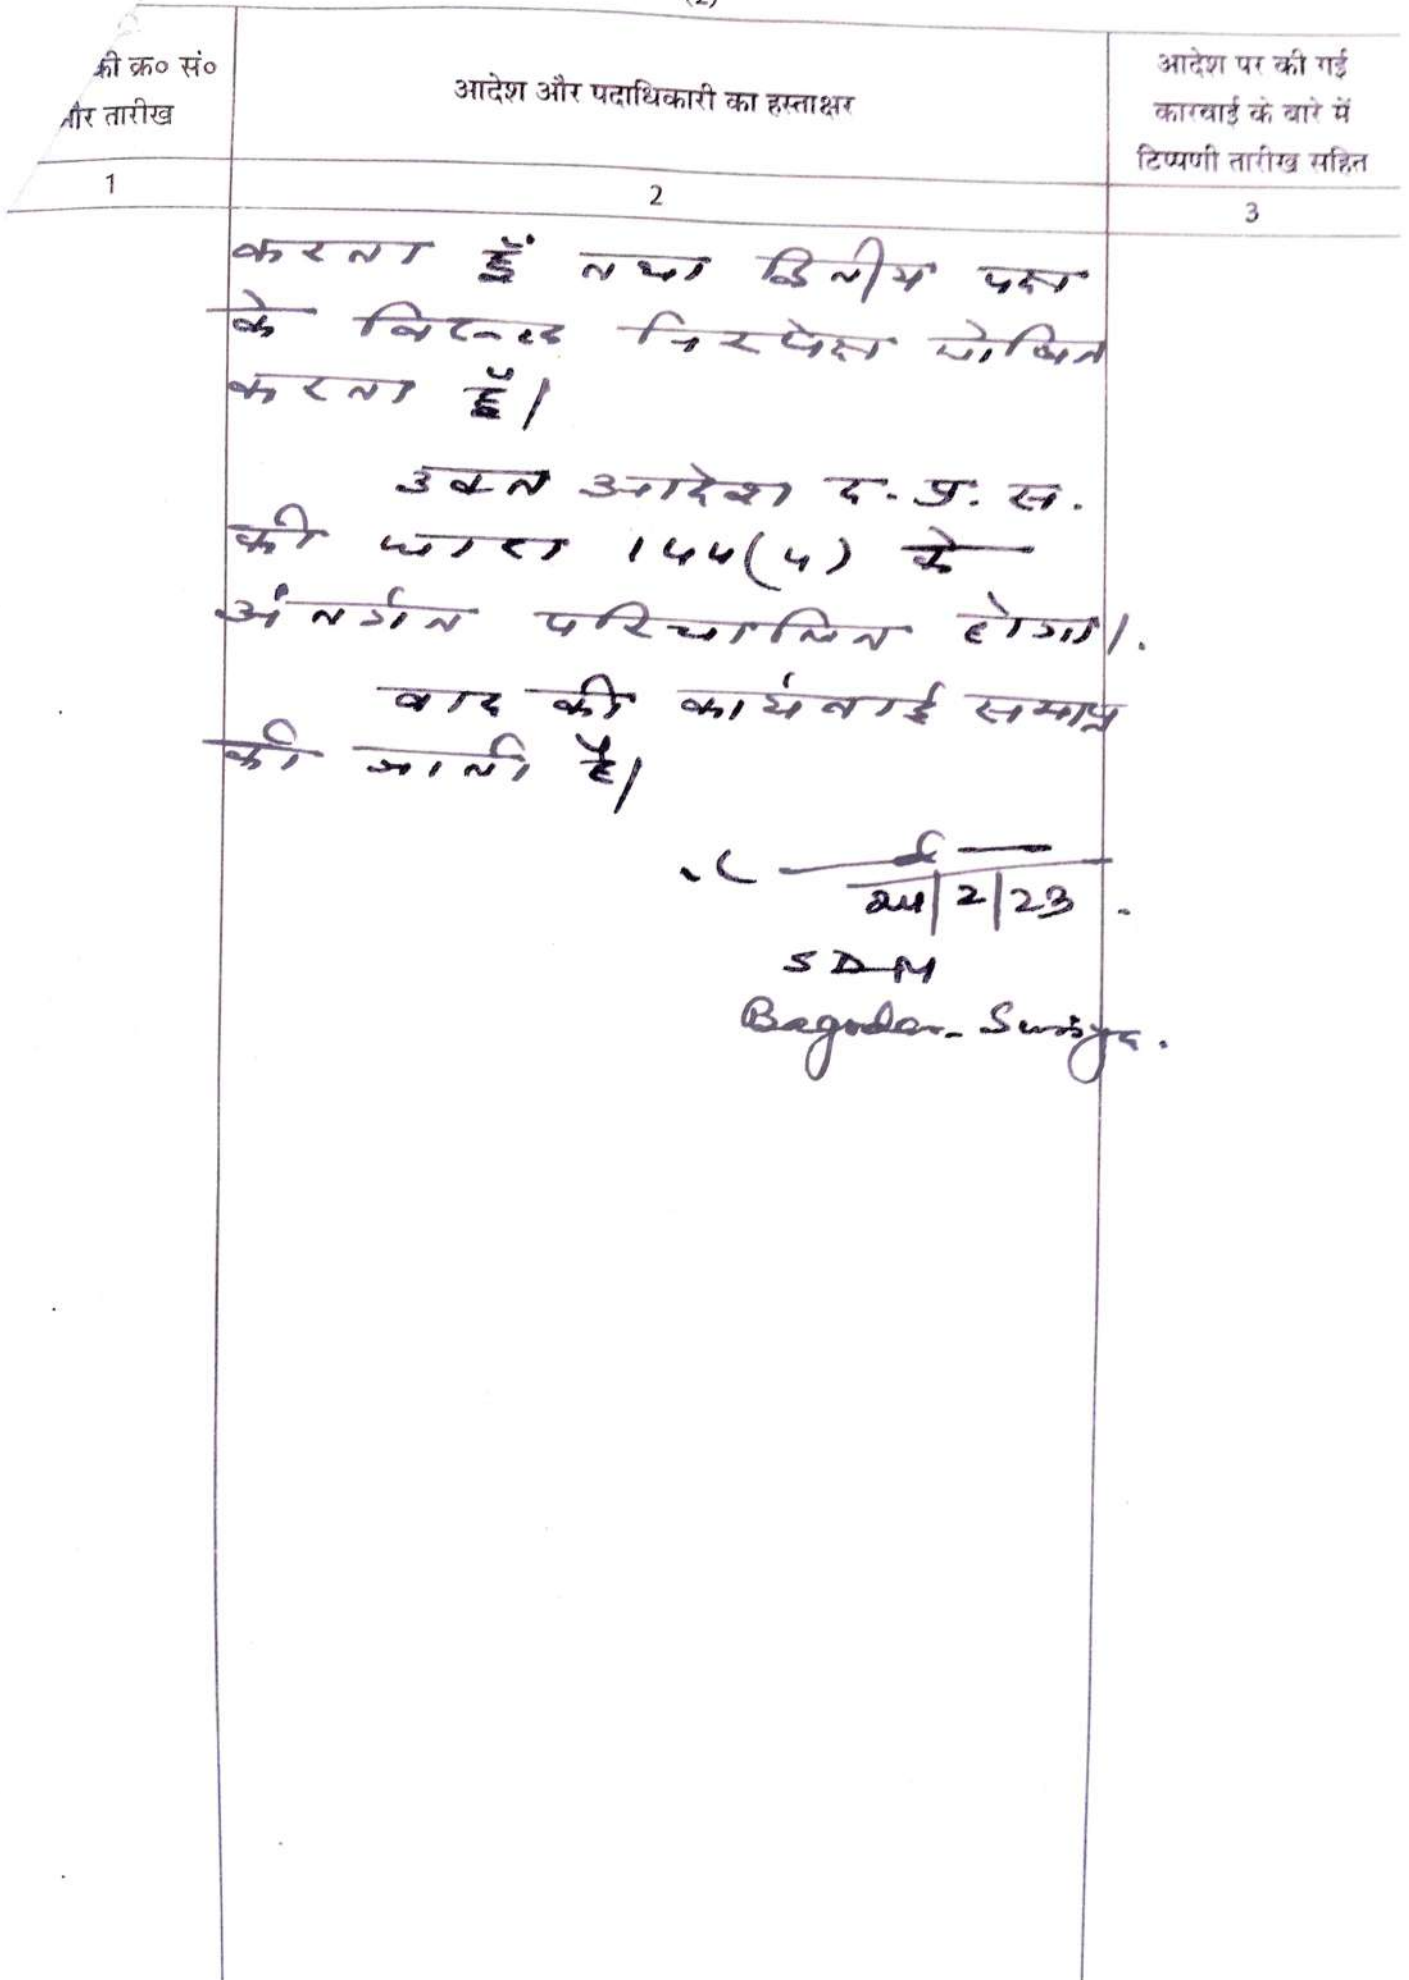 (2)
की क्र० सं०
और तारीख
आदेश और पदाधिकारी का हस्ताक्षर
आदेश पर की गई
कारवाई के बारे में
टिप्पणी तारीख सहित
1
2
3
करता हूँ तथा द्वितीय पक्ष
के विरुद्ध निरपेक्ष घोषित
करता हूँ।
उक्त आदेश द. प्र. स.
की धारा 144(4) के
अंतर्गत परिचालित होगा।
वाद की कार्यवाई समाप्त
की जाती है।
24/2/23
SDM
Bagodar-Suriya.